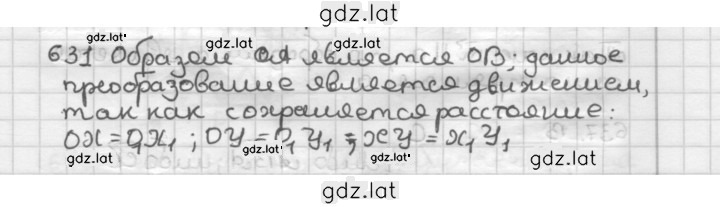 gdz.lat
631 Образом ОА является ОВ; данное
gdz.lat gdz.lat
преобразование является движением,
так как сохраняется расстояние:
ОХ = О₁Х₁ ; ОУ = О₁У₁ ; ХУ = Х₁У₁
gdz.lat gdz.lat gdz.lat
gdz.lat